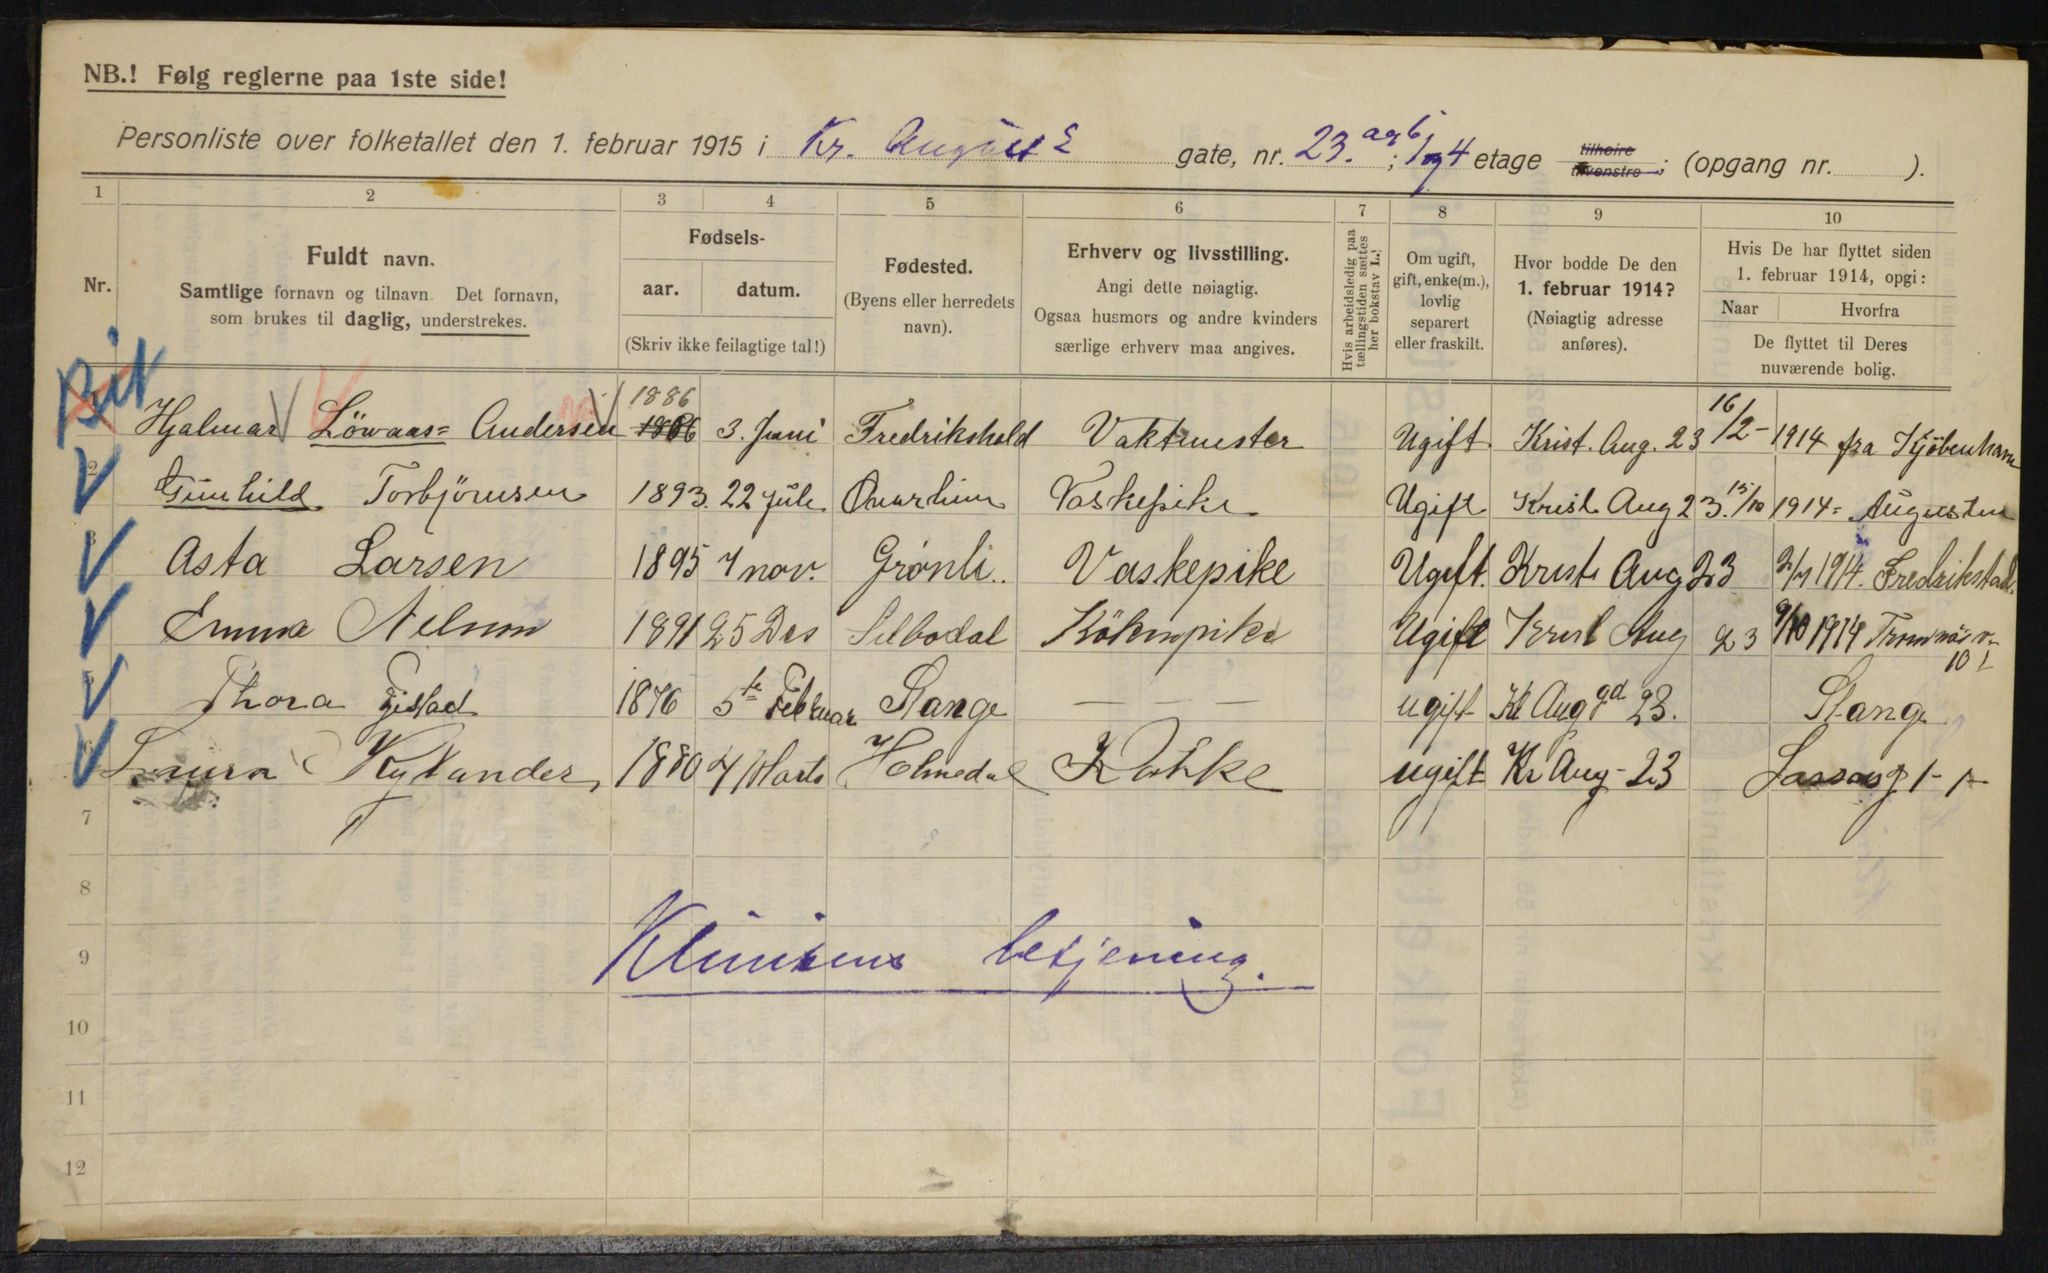 NB.! Følg reglerne paa 1ste side!
Personliste over folketallet den 1. februar 1915 i Kr. August gate, nr. 23. ; 1 og 4 etage tilhøire tilvenstre; (opgang nr. ).
1 2 3 4 5 6 7 8 9 10
Nr.
Fuldt navn.
Samtlige fornavn og tilnavn. Det fornavn,
som brukes til daglig, understrekes.
Fødsels-
aar. datum.
(Skriv ikke feilagtige tal!)
Fødested.
(Byens eller herredets
navn).
Erhverv og livsstilling.
Angi dette nøiagtig.
Ogsaa husmors og andre kvinders
særlige erhverv maa angives.
Hvis arbeidsledig paa
tællingstiden sættes
her bokstav L.!
Om ugift,
gift, enke(m.),
lovlig
separert
eller fraskilt.
Hvor bodde De den
1. februar 1914?
(Nøiagtig adresse
anføres).
Hvis De har flyttet siden
1. februar 1914, opgi:
Naar Hvorfra
De flyttet til Deres
nuværende bolig.
Bit
1886
Hjalmar Löwaas= Andersen 1886 3. Juni Fredrikshald Vaktmester Ugift Krist. Aug. 23 16/2- 1914 fra Kjöbenhavn
2 Gunhild Torbjörnsen 1893. 22 Vaskepike Ugift Krist Aug 23. 15/10 1914=
3 Asta Larsen 1895 7 nov. Grønli.. Vaskepike Ugift. Krist Aug 23 1914. Fredrikstad.
Emma Nelson 1891 25 Des Silbodal Kökenpike Ugift Krist Aug 23 9/10 1914
10 I
5 Thora 1876 5te Februar Stange — — — ugift Kr Aug gd 23. Stange
6 Laura Kylander, 1880 4 Marts Holmedal Kokke ugift Kr Aug- 23
7
8
9 Klinikens betjening.
10
11
12